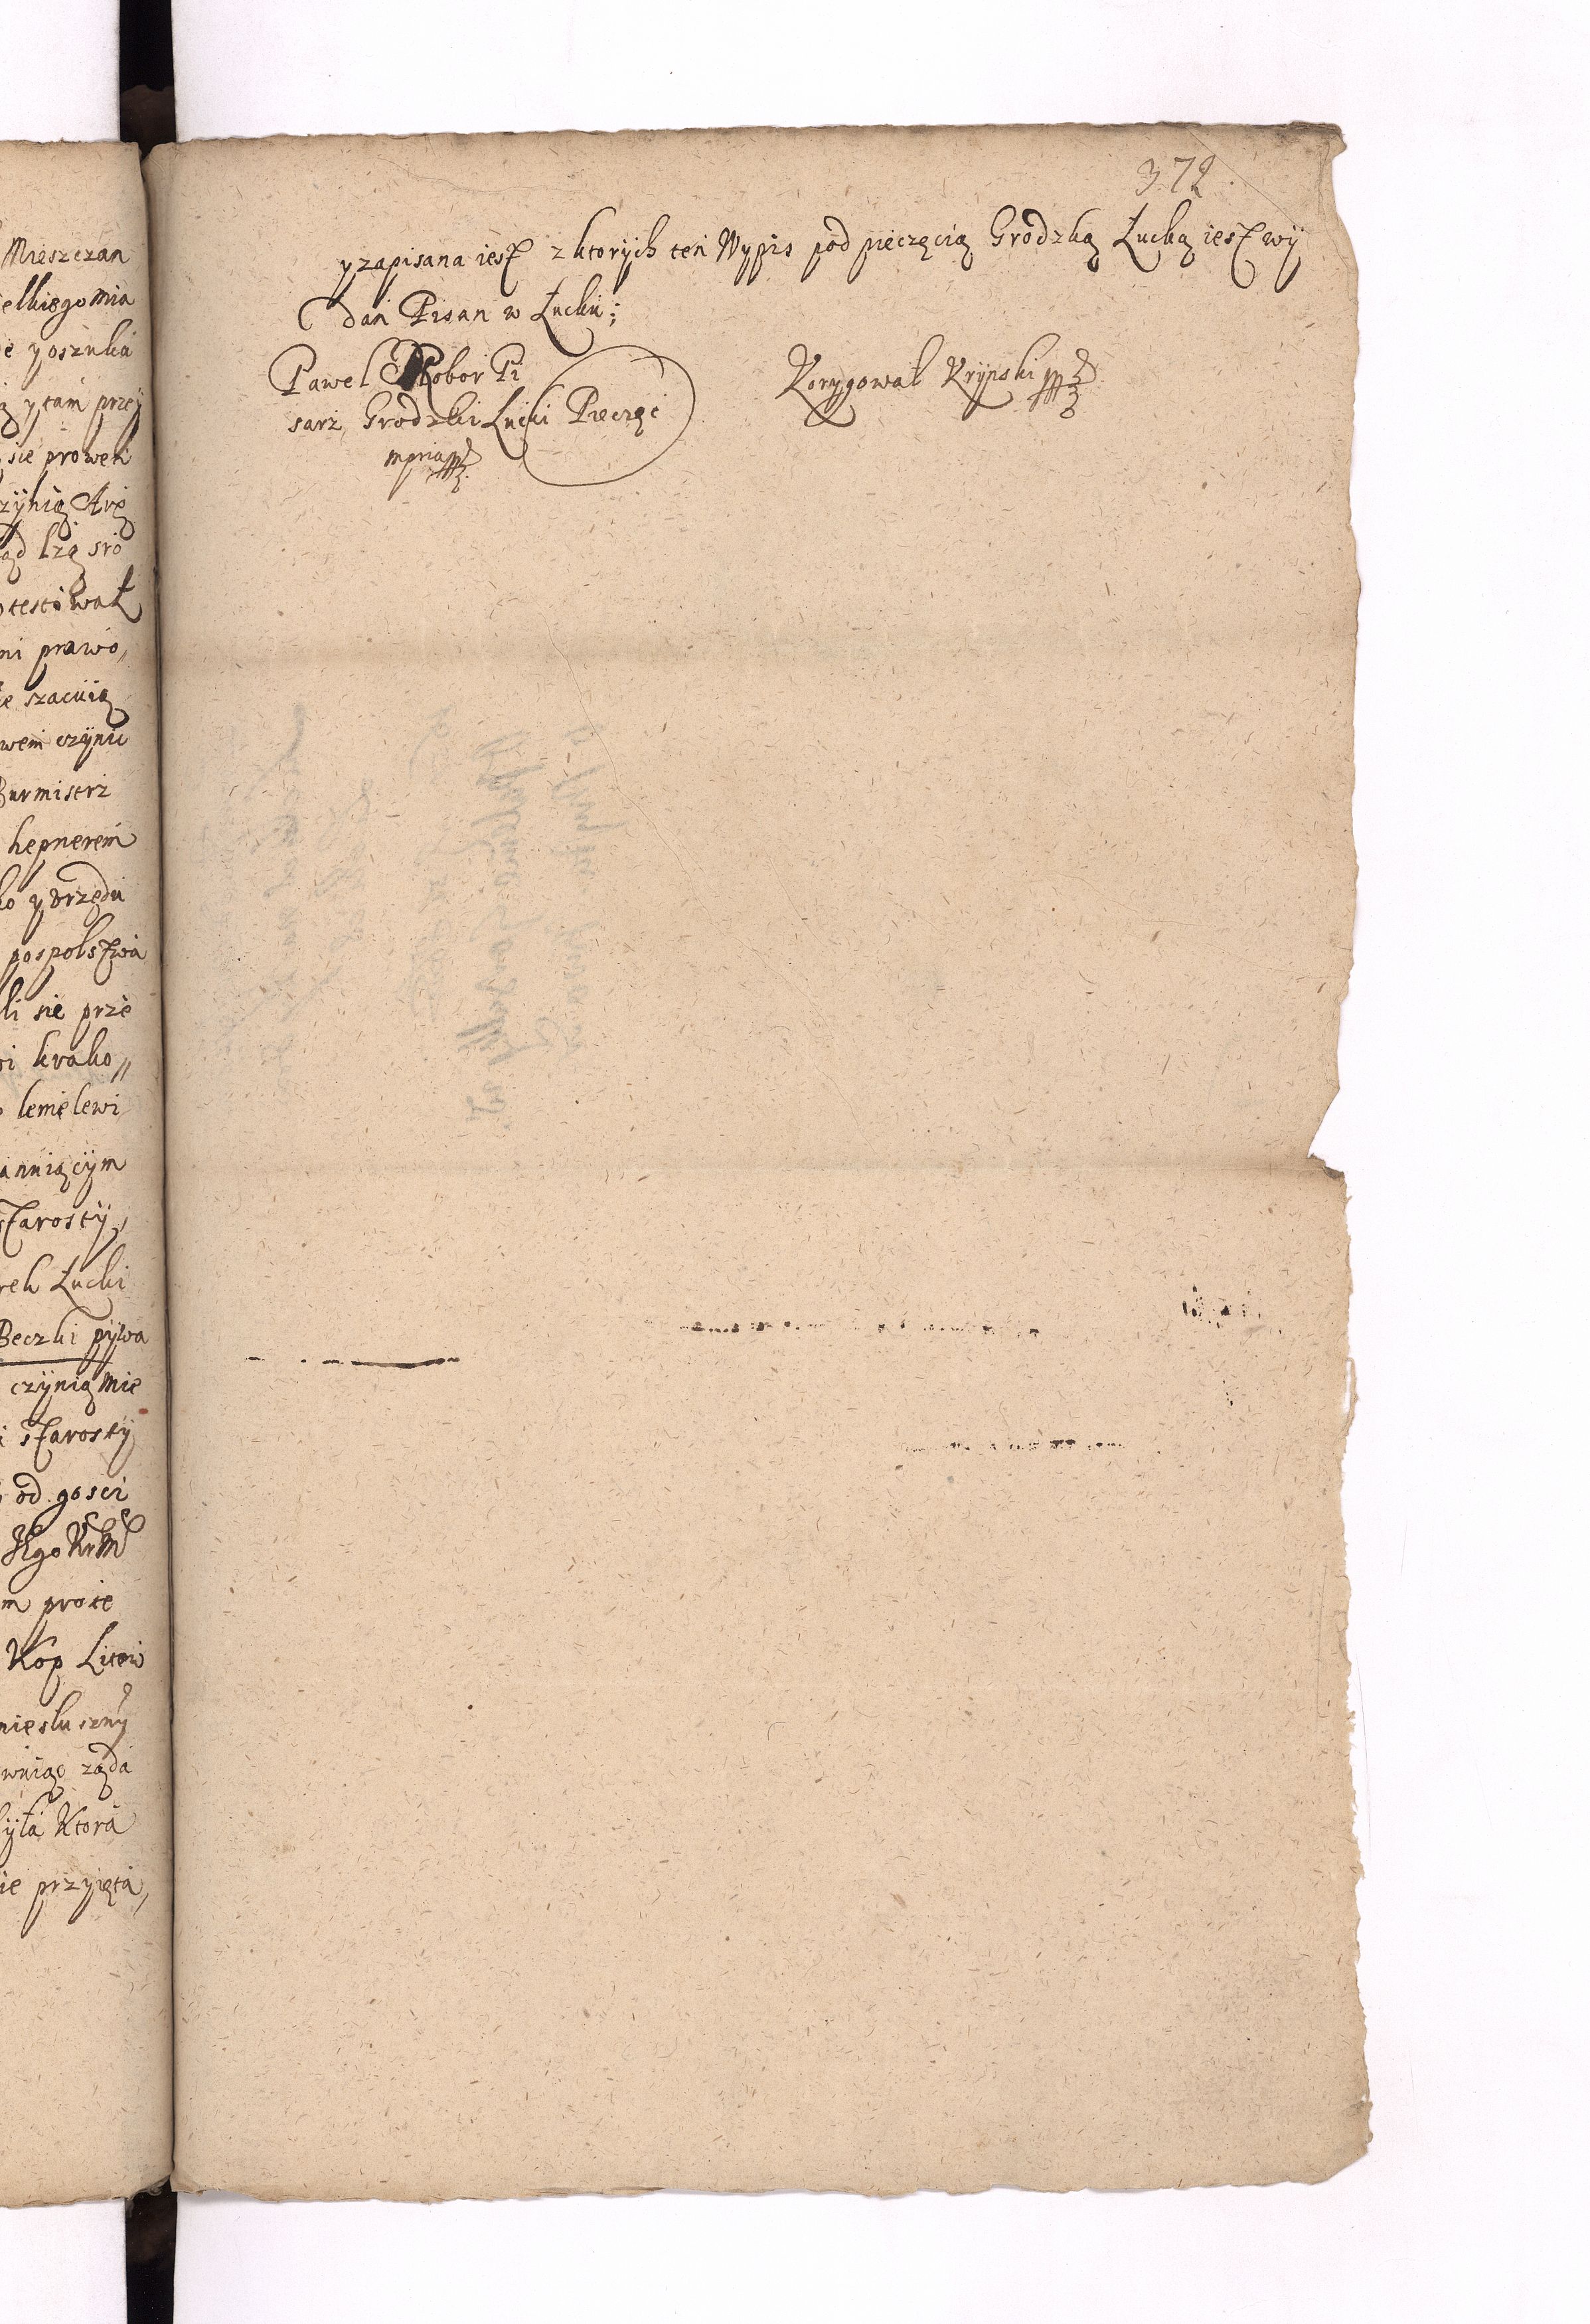 Mieszczan
elkiego mia
e y oszuka
ą y tam przy
sie prowen
zÿnią Arę
ąd lzą sro
otestował
ni prawo,
ie szacuią
wem czÿnic
Burmistrz
hepnerem
ko y vrzędu
pospolstwa
li sie prze
wi krako„
lemelewi
annigcÿm
starostÿ,
rek Łucki
Beczki pÿwa
czÿnią Mie
i starostÿ
od gosci
JEgo KrMć
m prote
Kop Litew
niesluszny
wniąc ząda
była Ktora
ie przyięta,
372
y zapisana iest z ktorÿch ten Wypis pod pieczęcią Grodzką Łucką iest wÿ
dan Pisan w Łucku;
Pawel Kobor Pi
sarz Grodzki Łucki Pieczęć
mpria
Korygował Krÿnski